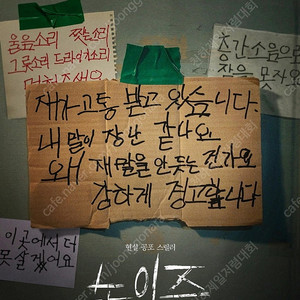 울음소리 짖는소리
그릇소리 드라이기소리
멈춰주세요
층간소음으로
잠을 못자요
제가 고통 받고 있습니다.
내 말이 장난 같나요
왜 제 말을 안 듣는 건가요
강하게 경고합니다
이곳에서 더
못살겠어요
현실 공포 스릴러
노이즈